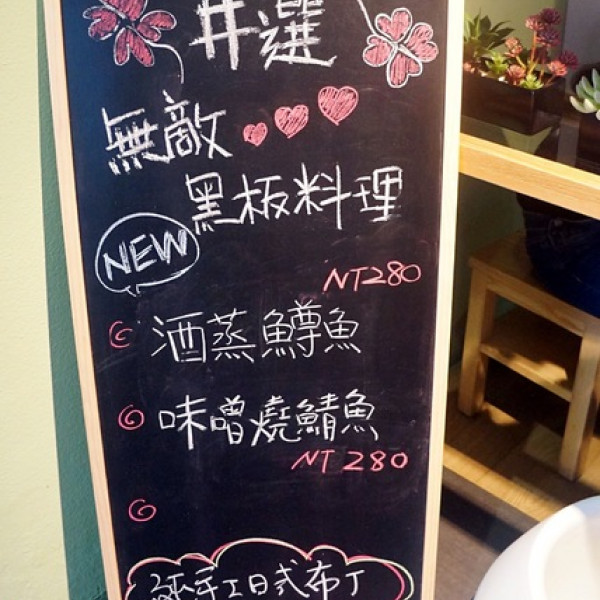 井選
無敵
黑板料理
NEW
NT280
酒蒸鱒魚
味噌燒鯖魚
NT280
純手工日式布丁